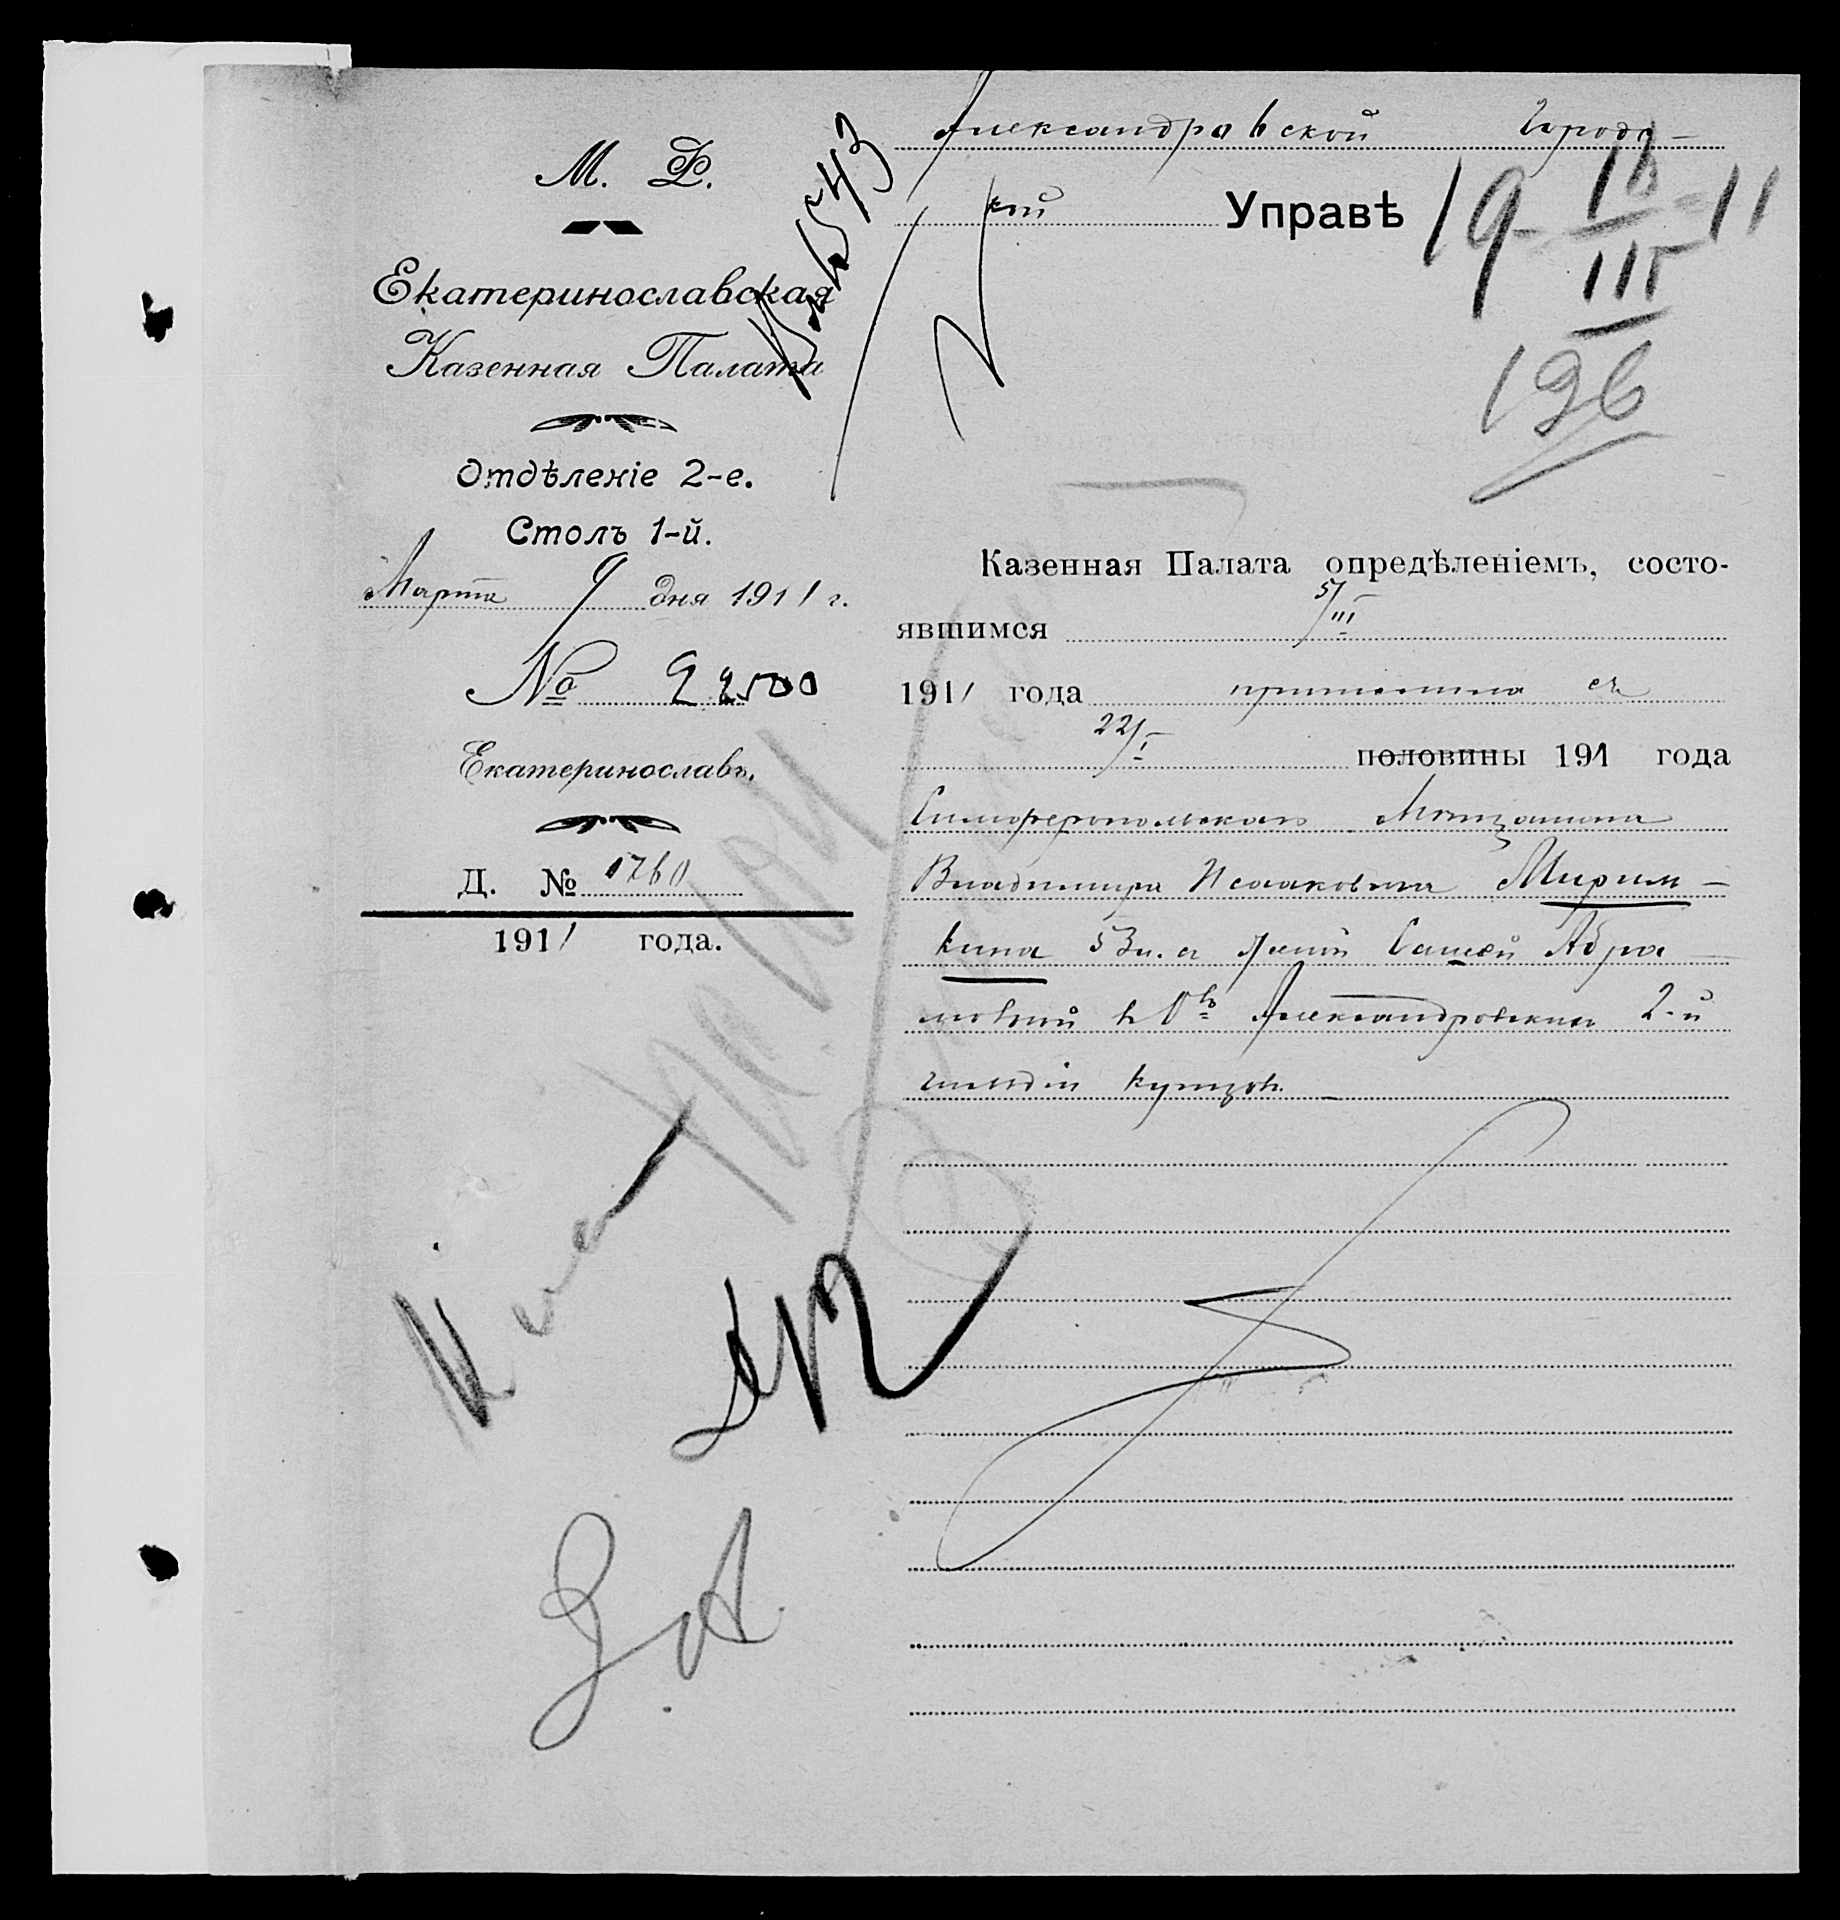 М. Ф.
Екатеринославская
Казенная Палата
Отдѣленіе 2-е.
Столъ 1-й.
Марта 9 дня 1911 г.
№ 22500
Екатеринославъ.
Д. № 1760
1911 года.
Александровской Городс-
кой Управѣ
19 - 18/III - 11
196
Казенная Палата опредѣленіемъ, состо-
явшимся 5/III
1911 года причислила съ
22/I половины 191 года
Симферопольскаго Мѣщанина
Владимира Исааковича Мирим-
кина 53 л. съ женой Сашей Абра-
мовной въ Александровскіе 2-й
гильдіи купцы.